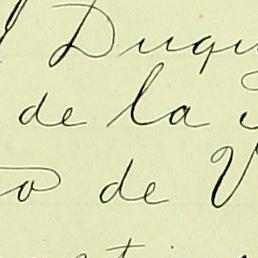 Duqu
de la
o de V